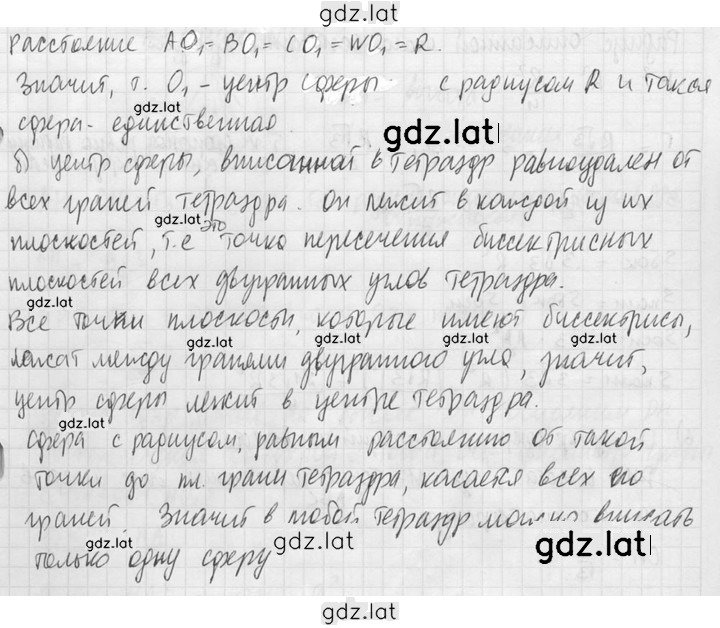 gdz.lat
расстояние AO₁=BO₁=CO₁=WO₁=R.
Значит, т. O₁ - центр сферы с радиусом R и такая
gdz.lat
gdz.lat
сфера - единственная.
gdz.lat
б) центр сферы, вписанной в тетраэдр равноудалён от
всех граней тетраэдра. Он лежит в каждой из их
gdz.lat
плоскостей, т.е это точка пересечения биссектрисных
плоскостей всех двугранных углов тетраэдра.
gdz.lat
Все точки плоскости, которые имеют биссектрисы,
gdz.lat gdz.lat gdz.lat
лежат между гранями двугранного угла, значит,
центр сферы лежит в центре тетраэдра.
gdz.lat
сфера с радиусом, равным расстоянию от такой
точки до пл. грани тетраэдра, касается всех его
граней. Значит в любой тетраэдр можно вписать
gdz.lat gdz.lat gdz.lat
только одну сферу
gdz.lat